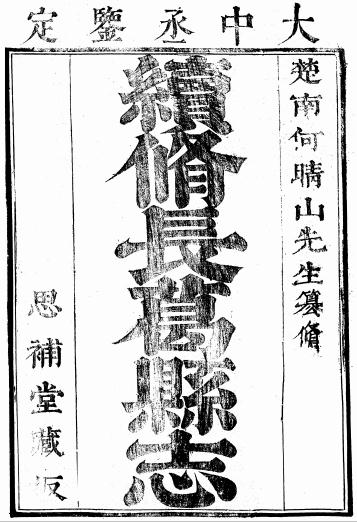 大中丞鑒定
楚南何晴山先生纂脩
續脩長葛縣志
思補堂藏板